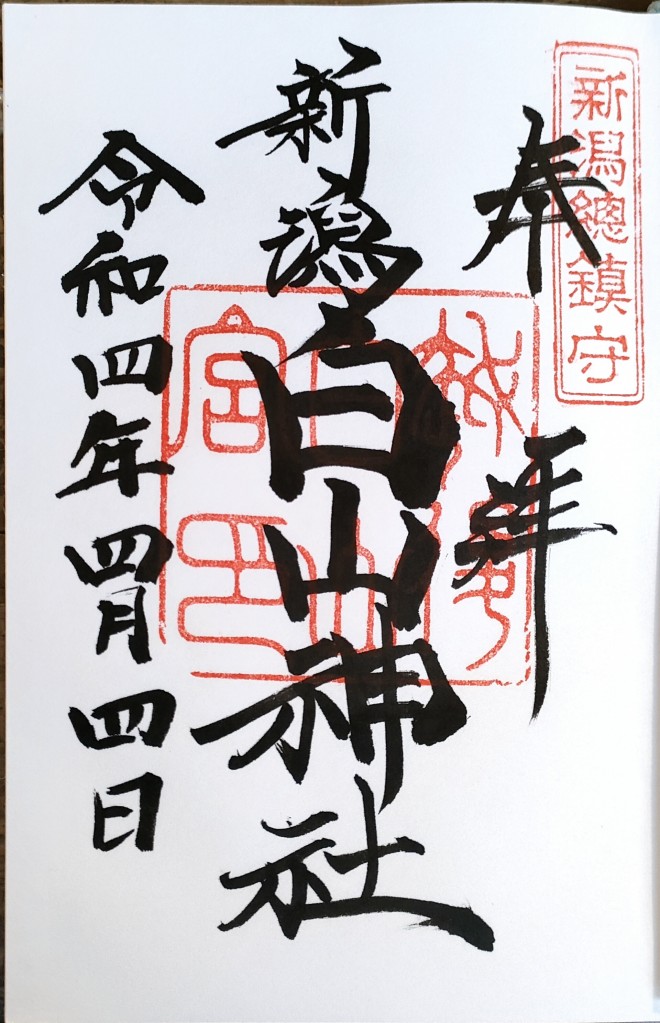 新潟總鎮守
奉拝
新潟白山神社
令和四年四月四日